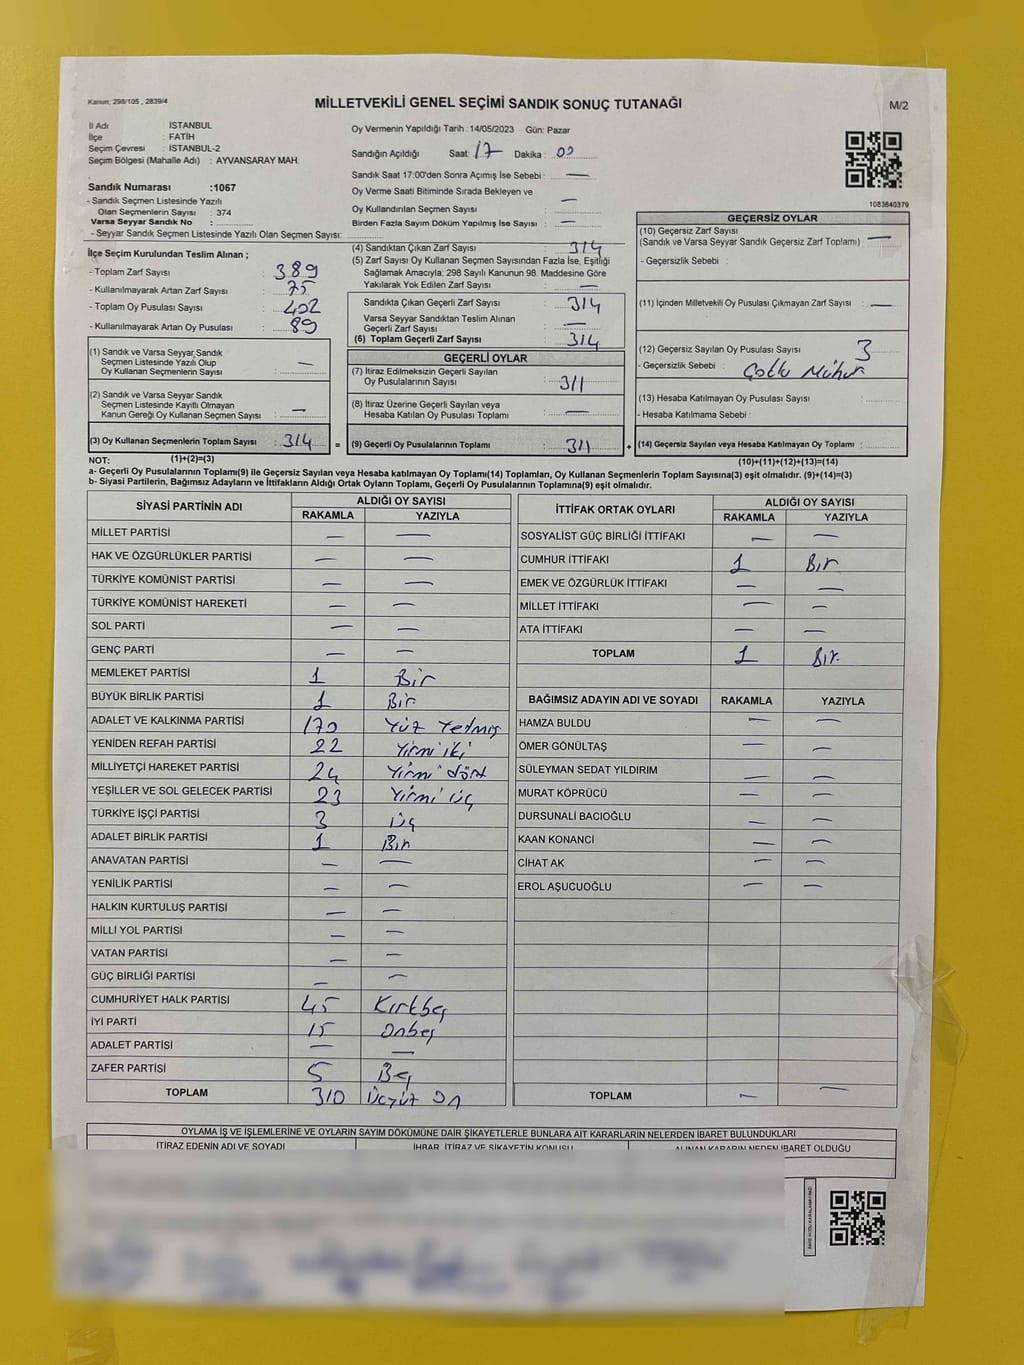 Kanun: 298/105 , 2839/4
MİLLETVEKİLİ GENEL SEÇİMİ SANDIK SONUÇ TUTANAĞI
M/2
İl Adı : İSTANBUL
İlçe : FATİH
Seçim Çevresi : İSTANBUL-2
Seçim Bölgesi (Mahalle Adı) : AYVANSARAY MAH.
Sandık Numarası :1067
- Sandık Seçmen Listesinde Yazılı
Olan Seçmenlerin Sayısı : 374
Varsa Seyyar Sandık No :
- Seyyar Sandık Seçmen Listesinde Yazılı Olan Seçmen Sayısı:
Oy Vermenin Yapıldığı Tarih :14/05/2023 Gün: Pazar
Sandığın Açıldığı Saat: 17 Dakika : 00
Sandık Saat 17:00'den Sonra Açımış İse Sebebi : —
Oy Verme Saati Bitiminde Sırada Bekleyen ve
Oy Kullandırılan Seçmen Sayısı : —
Birden Fazla Sayım Döküm Yapılmış İse Sayısı : —
1083840379
İlçe Seçim Kurulundan Teslim Alınan ;
- Toplam Zarf Sayısı : 389
- Kullanılmayarak Artan Zarf Sayısı : 75
- Toplam Oy Pusulası Sayısı : 402
- Kullanılmayarak Artan Oy Pusulası : 89
(1) Sandık ve Varsa Seyyar Sandık
Seçmen Listesinde Yazılı Olup
Oy Kullanan Seçmenlerin Sayısı : —
(2) Sandık ve Varsa Seyyar Sandık
Seçmen Listesinde Kayıtlı Olmayan
Kanun Gereği Oy Kullanan Seçmen Sayısı : —
(3) Oy Kullanan Seçmenlerin Toplam Sayısı : 314 =
(4) Sandıktan Çıkan Zarf Sayısı : 314
(5) Zarf Sayısı Oy Kullanan Seçmen Sayısından Fazla İse, Eşitliği
Sağlamak Amacıyla; 298 Sayılı Kanunun 98. Maddesine Göre
Yakılarak Yok Edilen Zarf Sayısı : —
Sandıkta Çıkan Geçerli Zarf Sayısı : 314
Varsa Seyyar Sandıktan Teslim Alınan
Geçerli Zarf Sayısı : —
(6) Toplam Geçerli Zarf Sayısı : 314
GEÇERLİ OYLAR
(7) İtiraz Edilmeksizin Geçerli Sayılan
Oy Pusulalarının Sayısı : 311
(8) İtiraz Üzerine Geçerli Sayılan veya
Hesaba Katılan Oy Pusulası Toplamı : —
(9) Geçerli Oy Pusulalarının Toplamı : 311 +
GEÇERSİZ OYLAR
(10) Geçersiz Zarf Sayısı
(Sandık ve Varsa Seyyar Sandık Geçersiz Zarf Toplamı) : —
- Geçersizlik Sebebi :
(11) İçinden Milletvekili Oy Pusulası Çıkmayan Zarf Sayısı : —
(12) Geçersiz Sayılan Oy Pusulası Sayısı : 3
- Geçersizlik Sebebi : Çoklu Mühür
(13) Hesaba Katılmayan Oy Pusulası Sayısı :
- Hesaba Katılmama Sebebi :
(14) Geçersiz Sayılan veya Hesaba Katılmayan Oy Toplamı :
NOT: (1)+(2)=(3)
(10)+(11)+(12)+(13)=(14)
a- Geçerli Oy Pusulalarının Toplamı(9) ile Geçersiz Sayılan veya Hesaba katılmayan Oy Toplamı(14) Toplamları, Oy Kullanan Seçmenlerin Toplam Sayısına(3) eşit olmalıdır. (9)+(14)=(3)
b- Siyasi Partilerin, Bağımsız Adayların ve İttifakların Aldığı Ortak Oyların Toplamı, Geçerli Oy Pusulalarının Toplamına(9) eşit olmalıdır.
SİYASİ PARTİNİN ADI ALDIĞI OY SAYISI
RAKAMLA YAZIYLA
MİLLET PARTİSİ — —
HAK VE ÖZGÜRLÜKLER PARTİSİ — —
TÜRKİYE KOMÜNİST PARTİSİ — —
TÜRKİYE KOMÜNİST HAREKETİ — —
SOL PARTİ — —
GENÇ PARTİ — —
MEMLEKET PARTİSİ 1 Bir
BÜYÜK BİRLİK PARTİSİ 1 Bir
ADALET VE KALKINMA PARTİSİ 170 Yüz Yetmiş
YENİDEN REFAH PARTİSİ 22 Yirmi iki
MİLLİYETÇİ HAREKET PARTİSİ 24 Yirmi dört
YEŞİLLER VE SOL GELECEK PARTİSİ 23 Yirmi üç
TÜRKİYE İŞÇİ PARTİSİ 3 üç
ADALET BİRLİK PARTİSİ 1 Bir
ANAVATAN PARTİSİ — —
YENİLİK PARTİSİ — —
HALKIN KURTULUŞ PARTİSİ — —
MİLLİ YOL PARTİSİ — —
VATAN PARTİSİ — —
GÜÇ BİRLİĞİ PARTİSİ — —
CUMHURİYET HALK PARTİSİ 45 Kırkbeş
İYİ PARTİ 15 Onbeş
ADALET PARTİSİ — —
ZAFER PARTİSİ 5 Beş
TOPLAM 310 Üçyüz On
İTTİFAK ORTAK OYLARI ALDIĞI OY SAYISI
RAKAMLA YAZIYLA
SOSYALİST GÜÇ BİRLİĞİ İTTİFAKI — —
CUMHUR İTTİFAKI 1 Bir
EMEK VE ÖZGÜRLÜK İTTİFAKI — —
MİLLET İTTİFAKI — —
ATA İTTİFAKI — —
TOPLAM 1 Bir
BAĞIMSIZ ADAYIN ADI VE SOYADI RAKAMLA YAZIYLA
HAMZA BULDU — —
ÖMER GÖNÜLTAŞ — —
SÜLEYMAN SEDAT YILDIRIM — —
MURAT KÖPRÜCÜ — —
DURSUNALİ BACIOĞLU — —
KAAN KONANCİ — —
CİHAT AK — —
EROL AŞUCUOĞLU — —
TOPLAM — —
OYLAMA İŞ VE İŞLEMLERİNE VE OYLARIN SAYIM DÖKÜMÜNE DAİR ŞİKAYETLERLE BUNLARA AİT KARARLARIN NELERDEN İBARET BULUNDUKLARI
İTİRAZ EDENİN ADI VE SOYADI İHBAR, İTİRAZ VE ŞİKAYETİN KONUSU ALINAN KARARIN NEDEN İBARET OLDUĞU